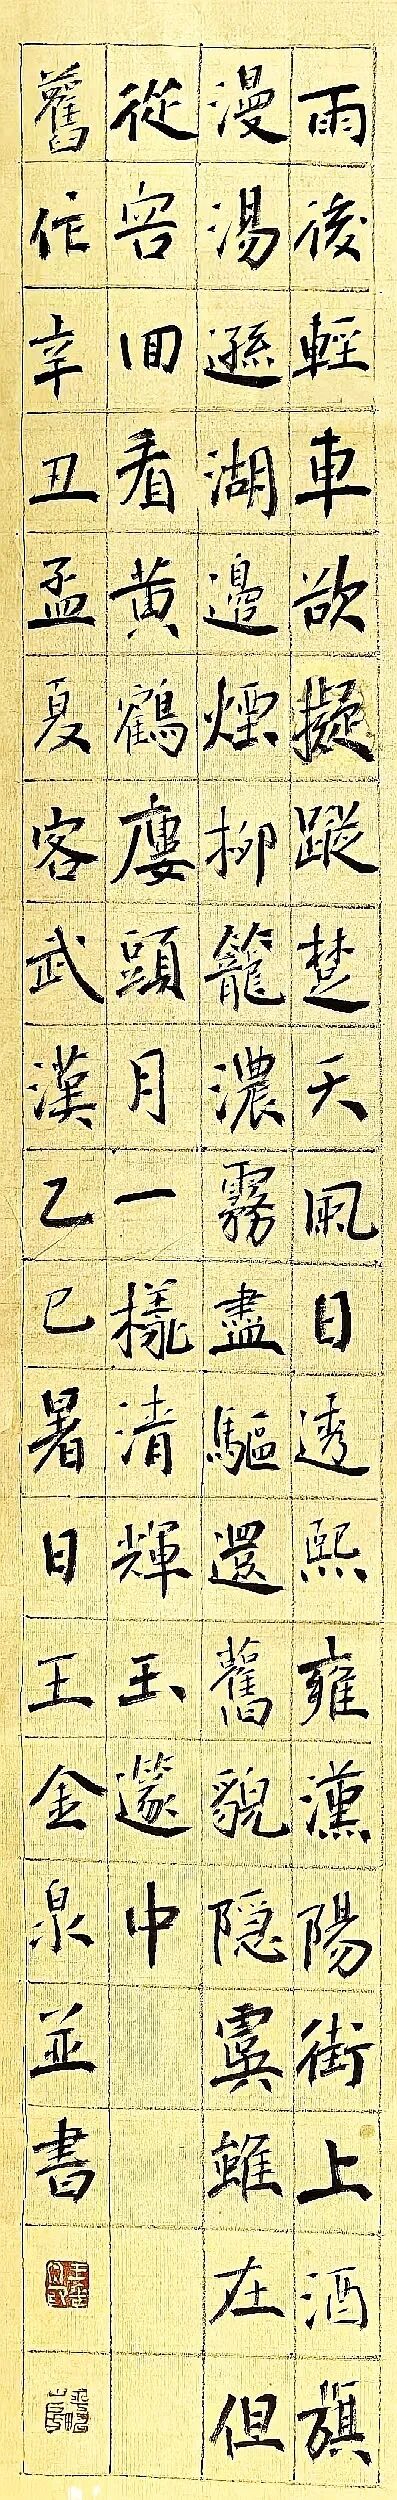 雨後輕車欲擬蹤楚天風日透熙雍漢陽街上酒旗
漫湯遜湖邊煙柳籠濃霧盡驅還舊貌隱虞雖在但
從容回看黃鶴廔頭月一樣清輝玉篴中
舊作辛丑孟夏客武漢乙巳暑日王金泉並書